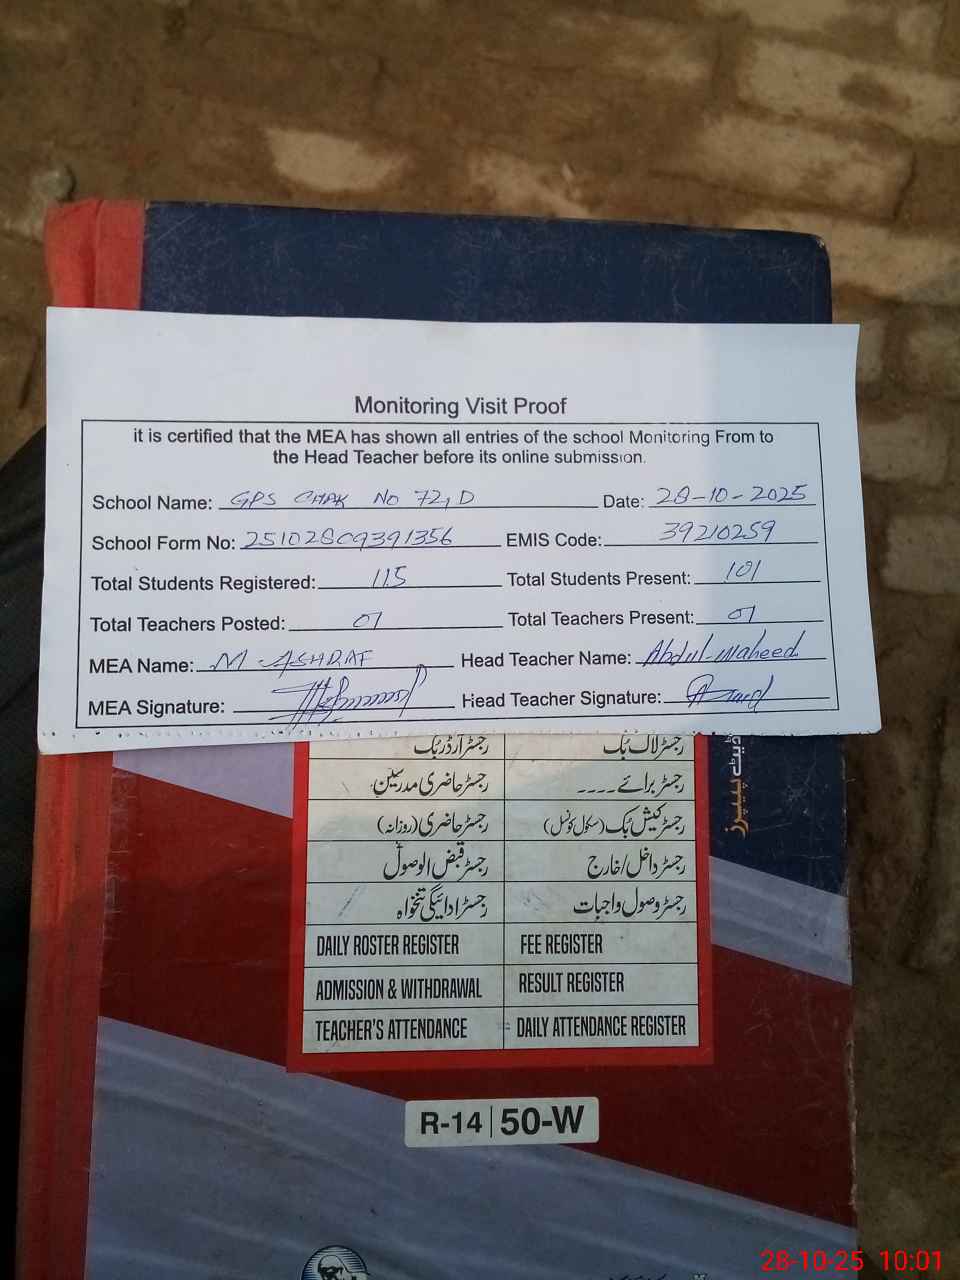 Monitoring Visit Proof
it is certified that the MEA has shown all entries of the school Monitoring From to
the Head Teacher before its online submission.
School Name: GPS CHAK NO 72, D Date: 28-10-2025
School Form No: 25102809391356 EMIS Code: 39210259
Total Students Registered: 115 Total Students Present: 101
Total Teachers Posted: 07 Total Teachers Present: 07
MEA Name: M ASHRAF Head Teacher Name: Abdul Waheed
MEA Signature: Head Teacher Signature:
رجسٹر لاگ بک رجسٹر آرڈر بک
رجسٹر برائے ---- رجسٹر حاضری مدرسین
رجسٹر کیش بک (سکول کونسل) رجسٹر حاضری (روزانہ)
رجسٹر داخل/خارج رجسٹر قبض الوصول
رجسٹر وصول واجبات رجسٹر ادائیگی تنخواہ
DAILY ROSTER REGISTER FEE REGISTER
ADMISSION & WITHDRAWAL RESULT REGISTER
TEACHER'S ATTENDANCE DAILY ATTENDANCE REGISTER
پیپرز
R-14 | 50-W
28-10-25 10:01